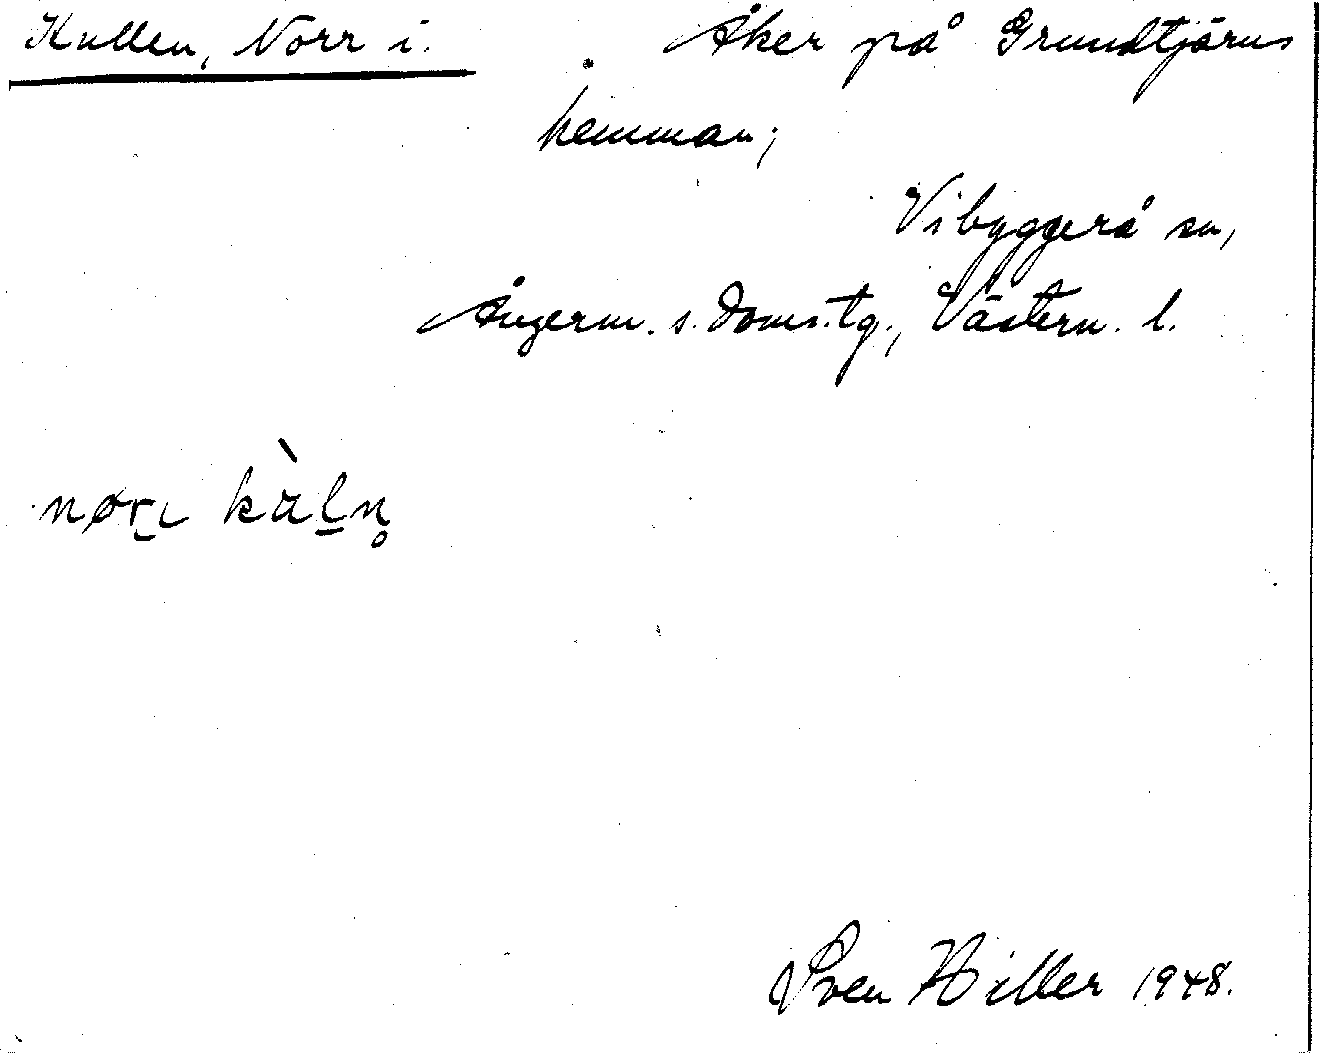 Kullen, Norr i. Åker på Grundtjärns
hemman;
Vibyggerå sn,
Ångerm. s. doms.tg., Västern. l.
nørɩ kùln̥
Sven Hiller 1948.